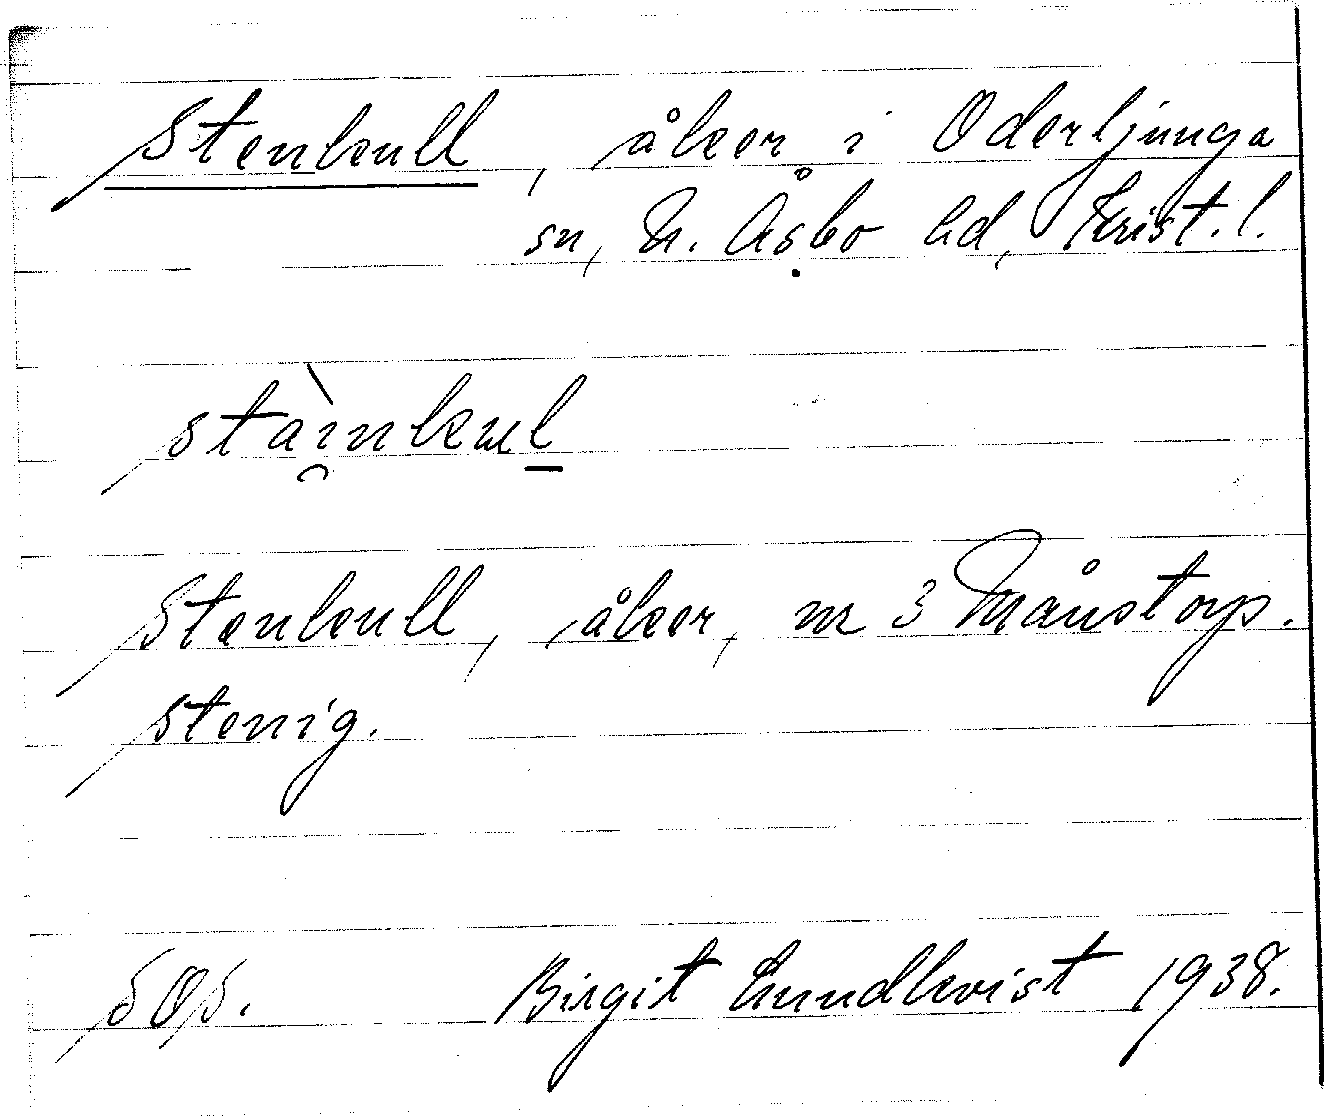 Stenkull, åker i Oderljunga
sn, N. Åsbo hd, Krist. l.
stài̯nkul
Stenkull, åker, nr 3 Månstorp.
Stenig.
SOS. Birgit Lundkvist 1938.